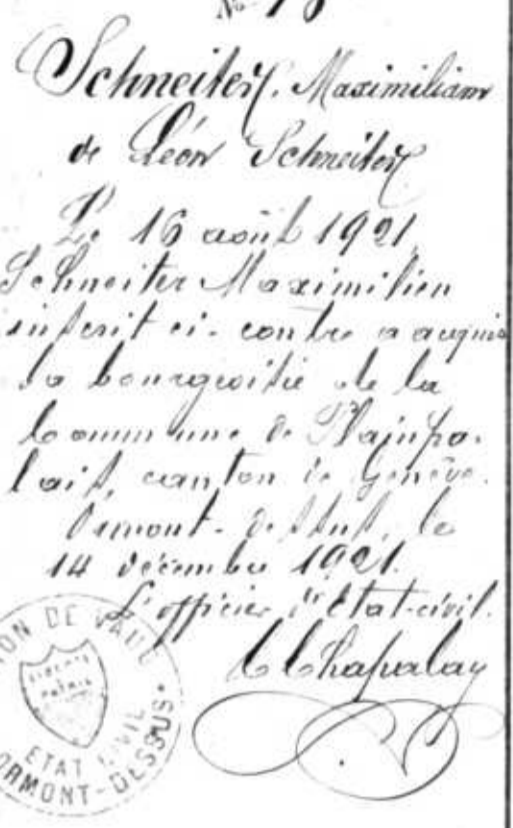 No 
Schneiter, Maximilian
de Léon Schneiter
Le 16 août 1921
Schneiter Maximilien
inscrit ci-contre a acquis
la bourgeoisie de la
Commune de Plainpa-
lais, canton de Genève.
Ormont-Dessus, le
14 décembre 1921.
L'officier d'Etat-civil.
Chapalay
CANTON DE VAUD
LIBERTÉ
ET
PATRIE
ETAT CIVIL
ORMONT-DESSUS